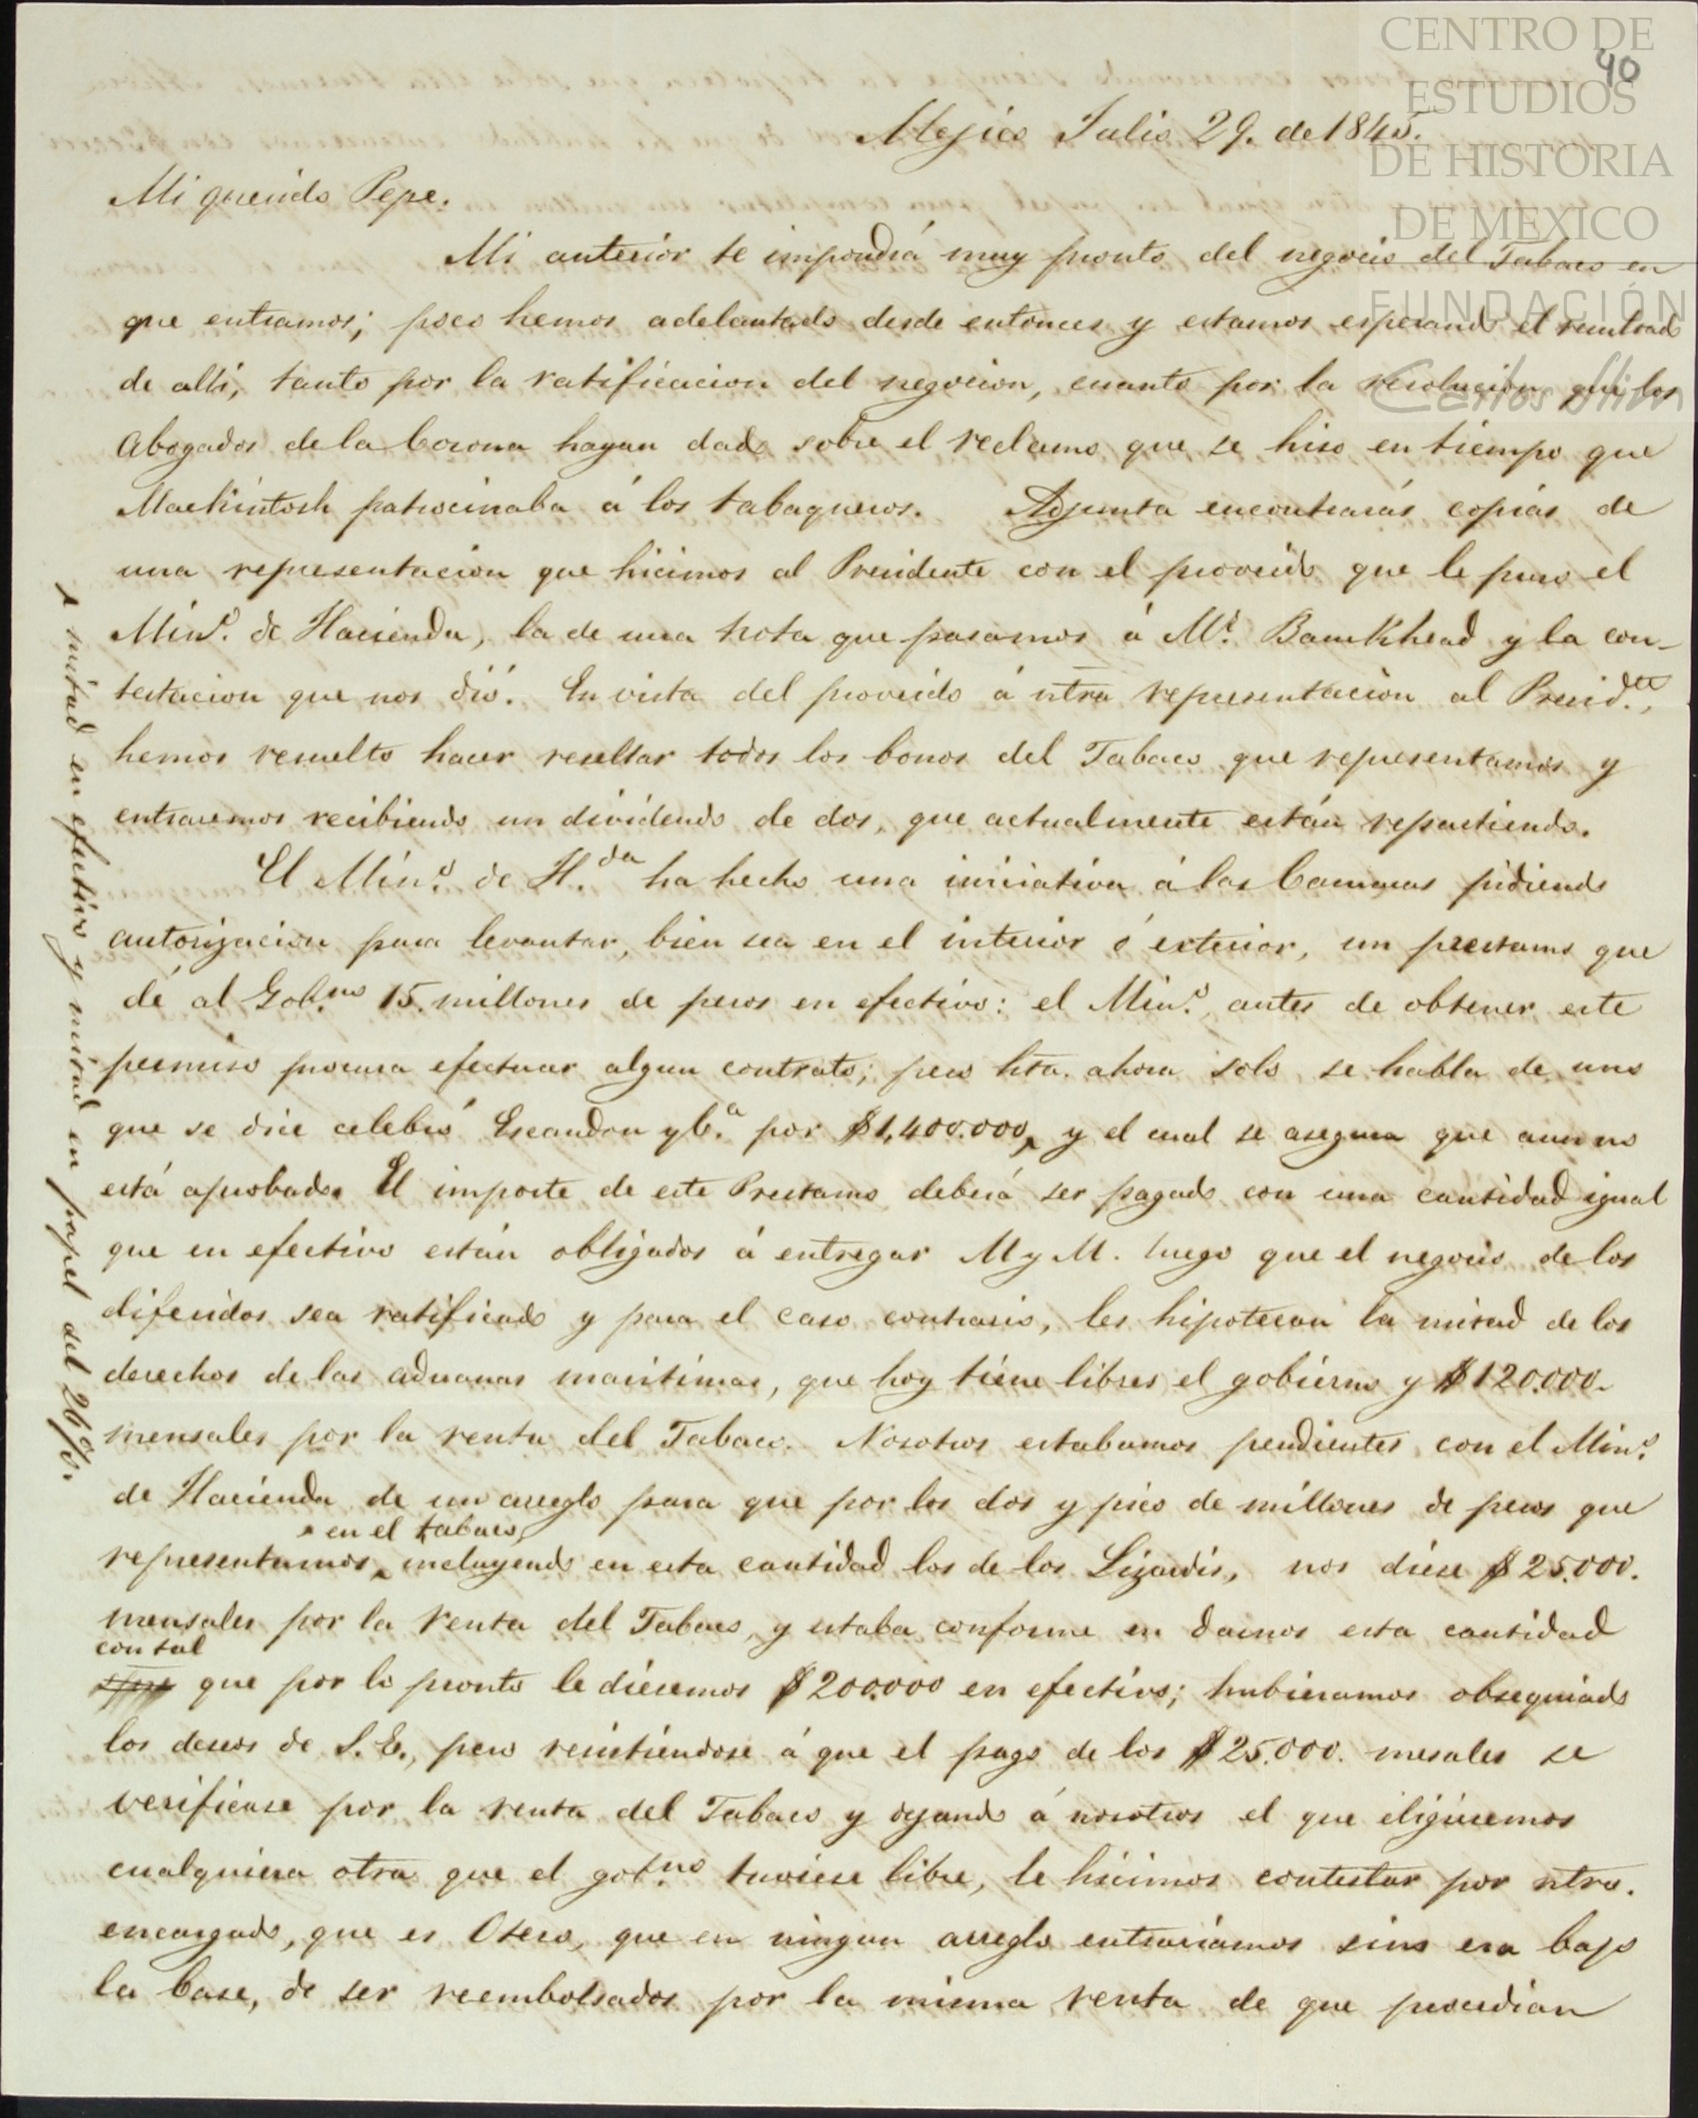 CENTRO DE
ESTUDIOS
DE HISTORIA
DE MEXICO
FUNDACIÓN
Carlos Slim
40
Mejico Julio 29. de 1845.
Mi querido Pepe.
Mi anterior te impondrá muy pronto del negocio del Tabaco en
que entramos; poco hemos adelantado desde entonces y estamos esperando el resultado
de allí, tanto por la ratificacion del negocion, cuanto por la resolucion que los
Abogados de la Corona hayan dado sobre el reclamo que se hiso en tiempo que
Mackintosh patrocinaba á los tabaqueros. Adjunta encontrarás copias de
una representacion que hicimos al Presidente con el proveido que le puso el
Mino. de Hacienda, la de una nota que pasamos á Mr. Bankhead y la con-
testacion que nos dió. En vista del proveido á ntra representacion al Presidte.,
hemos resuelto hacer resellar todos los bonos del Tabaco que representamos y
entraremos recibiendo un dividendo de dos, que actualmente están repartiendo.
El Mino. de H.da ha hecho una iniciativa á las Camaras pidiendo
autorizacion para levantar, bien sea en el interior ó exterior, un prestamo que
dé al Gobno. 15. millones de pesos en efectivo: el Mino. antes de obtener este
permiso procura efectuar algun contrato; pero hta. ahora solo se habla de uno
que se dice celebró Escandon y Ca. por $1,400.000, y el cual se asegura que aun no
está aprobado. El importe de este Prestamo deberá ser pagado con una cantidad igual
que en efectivo están obligados á entregar M y M. luego que el negocio de los
diferidos sea ratificado y para el caso contrario, les hipotecan la mitad de los
derechos de las aduanas maritimas, que hoy tiene libres el gobierno y $120.000.
mensales por la renta del Tabaco. Nosotros estabamos pendientes con el Mino.
de Hacienda de un arreglo para que por los dos y pico de millones de pesos que
en el tabaco,
representamos, incluyendo en esta cantidad los de los Lizardis, nos diese $25.000.
mensales por la renta del Tabaco, y estaba conforme en darnos esta cantidad
con tal
que por lo pronto le diesemos $200.000 en efectivo; hubieramos obsequiado
los deseos de S. E., pero resistiendose á que el pago de los $25.000. mesales se
verificase por la renta del Tabaco y dejando á nosotros el que eligiesemos
cualquiera otra que el gobno. tuviese libre, le hicimos contestar por ntro.
encargado, que es Otero, que en ningun arreglo entrariamos sino era bajo
la base, de ser reembolsados por la misma renta de que procedian
mitad en efectivo y mitad en papel del 26 %.